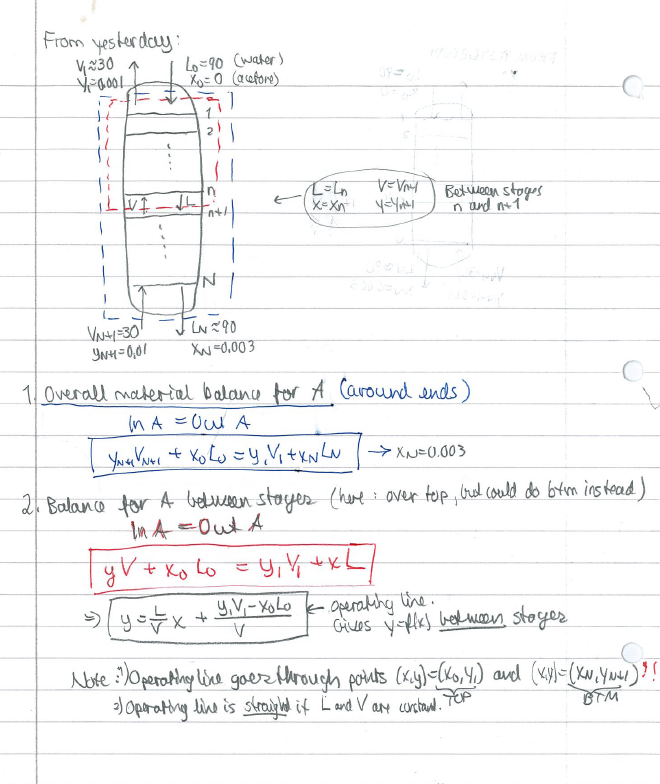 From yesterday:
V₁≈30
L₀=90 (water)
y₁=0,001
x₀=0 (acetone)
1
2
n
V
L
n+1
N
L=Ln V=Vn+1
x=xn y=yn+1
Between stages
n and n+1
VN+1=30
LN≈90
yN+1=0,01
XN=0,003
1. Overall material balance for A (around ends)
In A = Out A
yN+1VN+1 + x₀L₀ = y₁V₁ + xNLN → XN=0.003
2. Balance for A between stages (here: over top, but could do btm instead)
In A = Out A
yV + x₀L₀ = y₁V₁ + xL
⇒ y = L/V x + y₁V₁-x₀L₀/V ← operating line.
Gives y=f(x) between stages
Note: 1) Operating line goes through points (x,y)=(x₀,y₁) and (x,y)=(xN,yN+1)!!
TOP
BTM
2) Operating line is straight if L and V are constant.